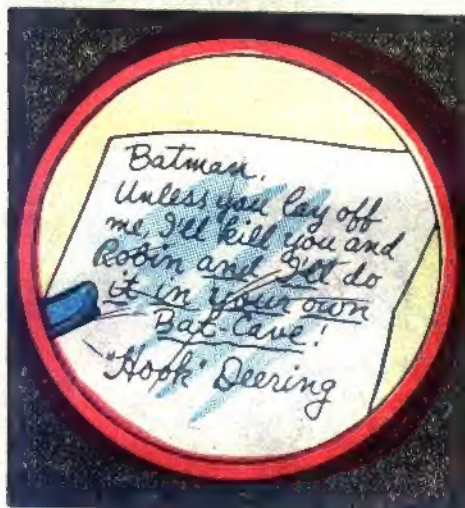 Batman,
Unless you lay off
me, I'll kill you and
Robin and I'll do
it in your own
Bat-Cave!
"Hook" Deering